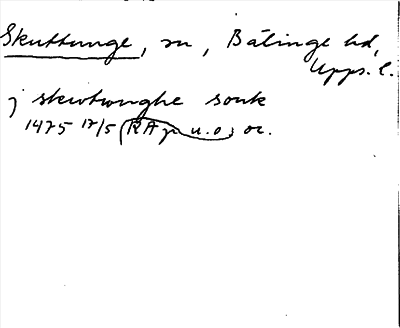 Skuttunge, sn, Bälinge hd,
Upps. l.
j skwtwnghe sonk
1475 17/5 (RAp u.o) or.